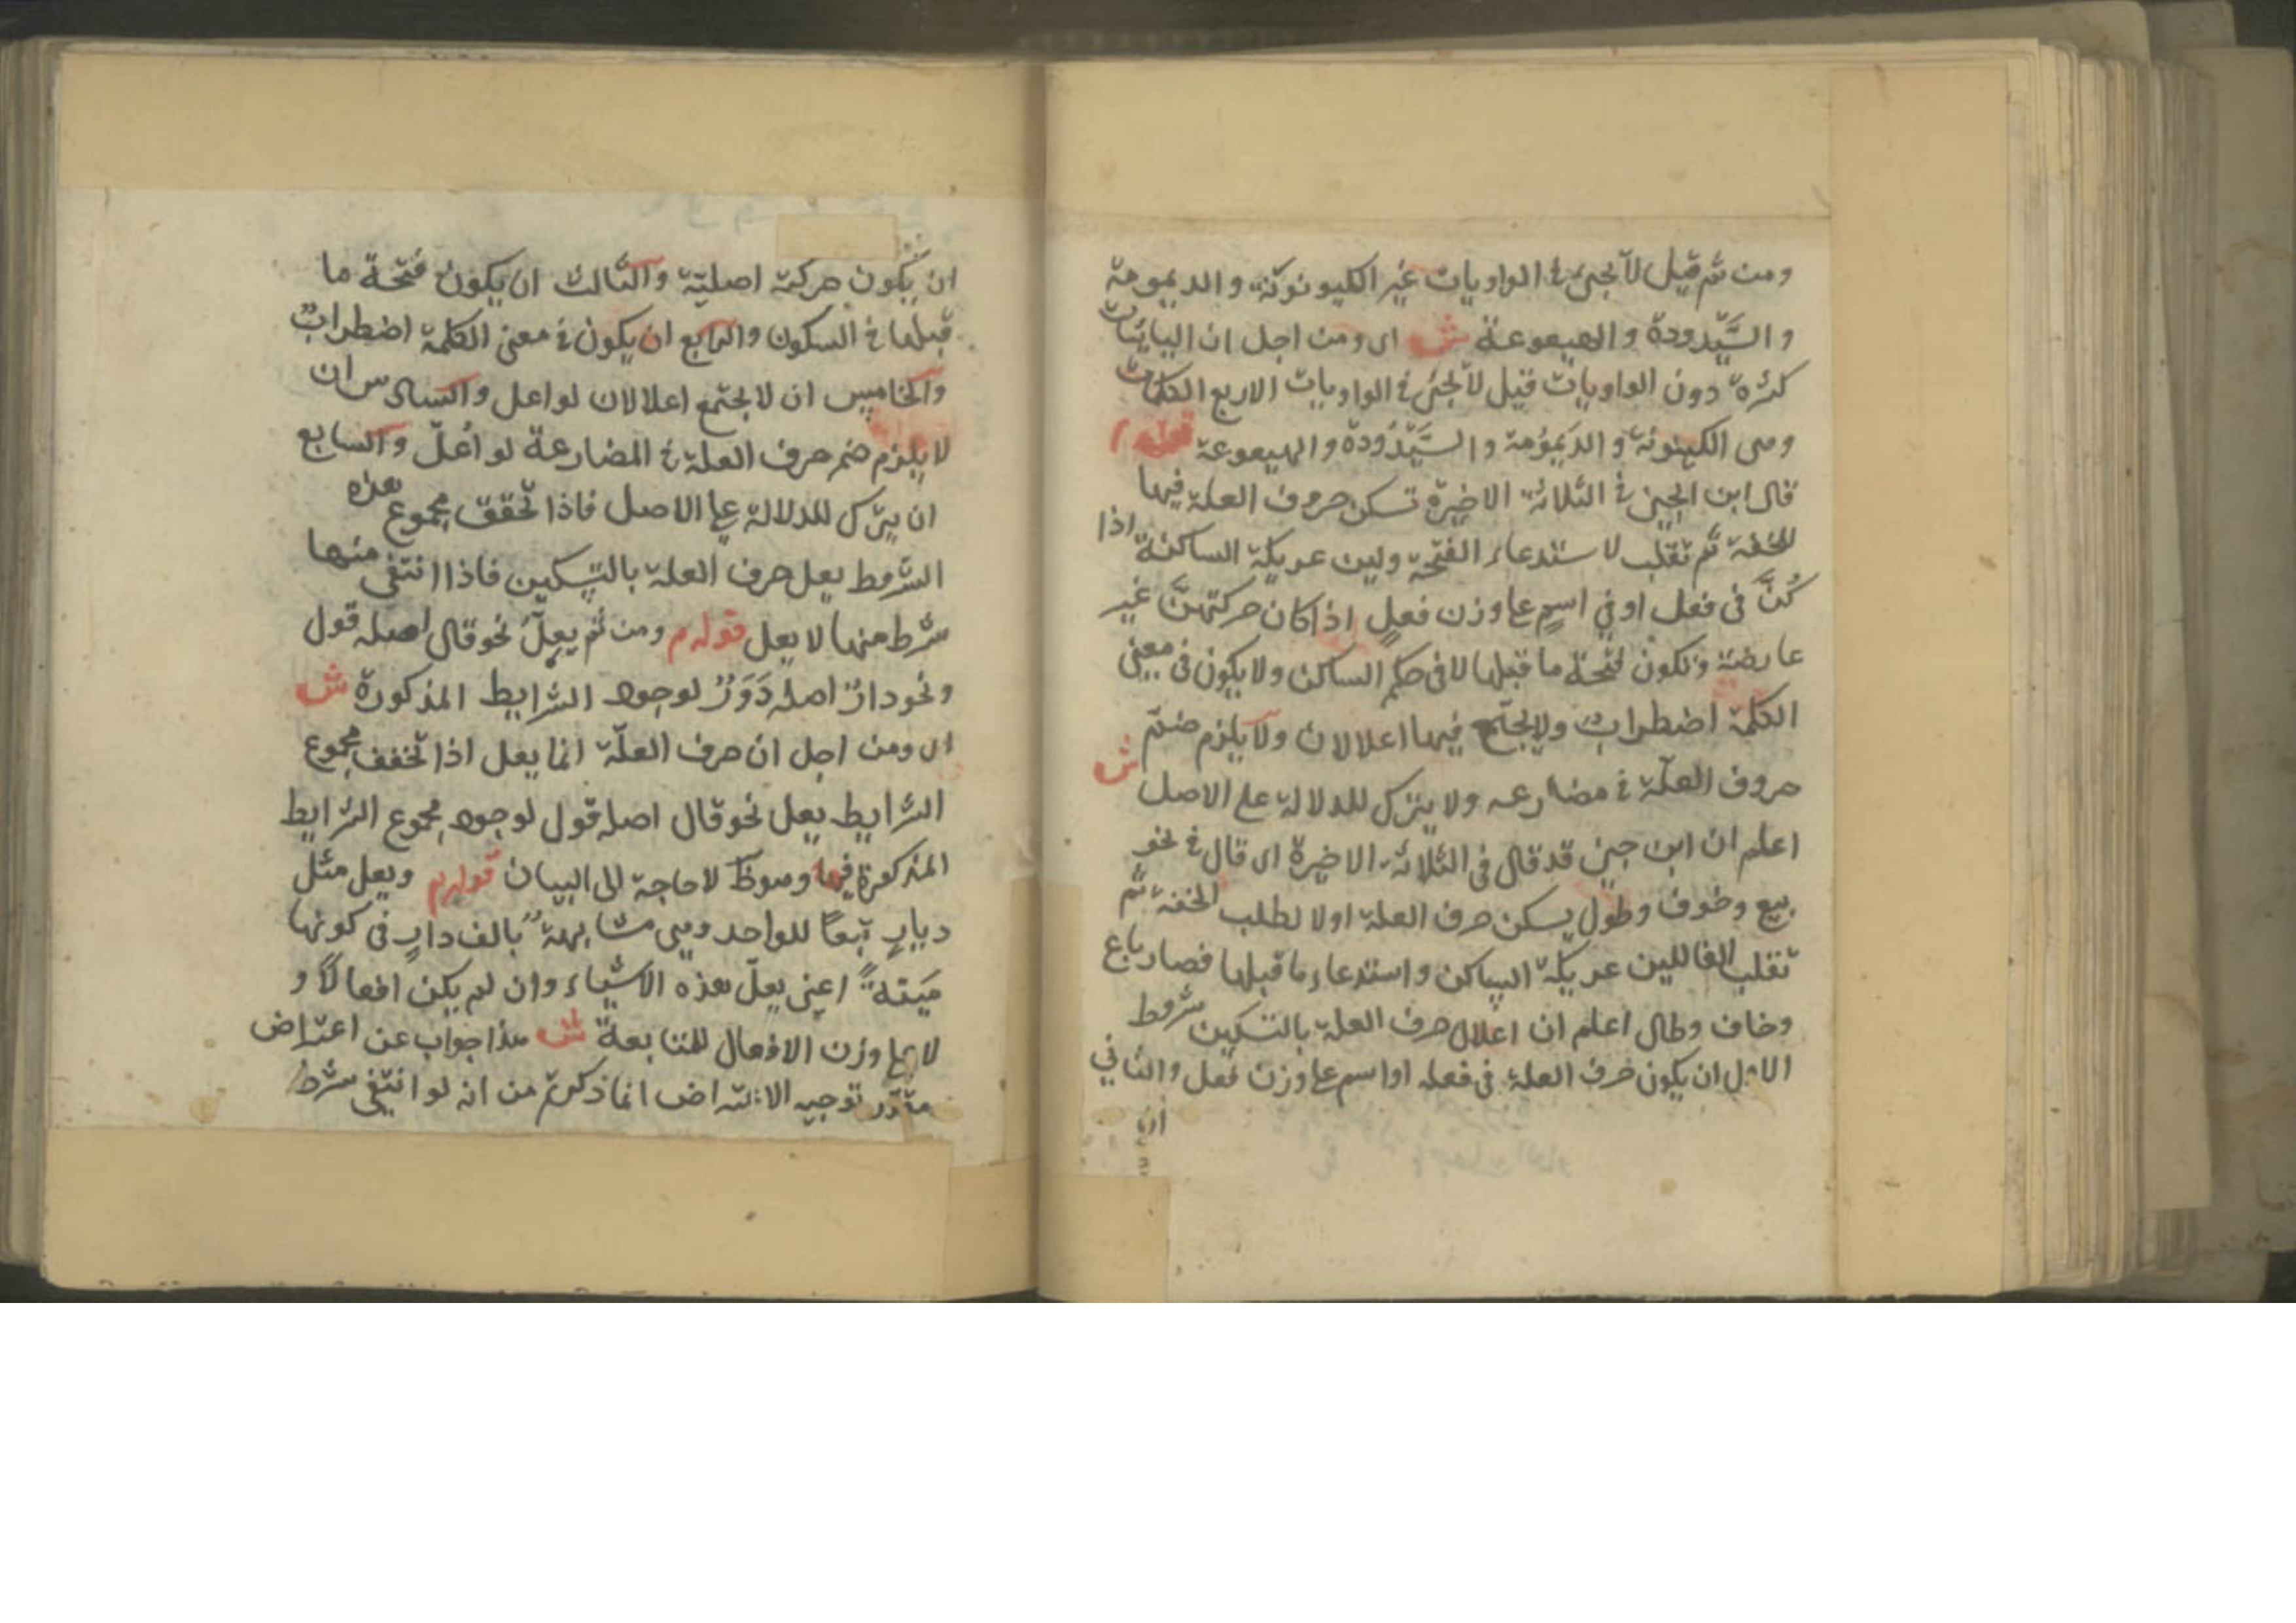 ومن ثم قيل لا يجئ في الواويات غير الكينونة والديمومة
والسَّيّدودة والهيعوعة ش اى ومن اجل ان اليائيات
كثرة دون الواويات قيل لا يجئ في الواويات الاربع الكلمات
وهى الكينونة والديمومة والسَّيّدودة والهيعوعة قوله م
قال ابن الجنى في الثلاثة الاخيرة تسكن حروف العلة فيها
للخفة ثم تقلب لاستدعاء الفتحة ولين عريكة الساكنة اذا
كُنَّ فى فعل او في اسم على وزن فعل اذا كان حركتهنّ غير
عارضة وتكون فتحة ما قبلها لا فى حكم الساكن ولا يكون فى معنى
الكلمة اضطراب ولا يجتمع فيها اعلالان ولا يلزم ضمّ
حروف العلّة في مضارعه ولا يترك للدلالة على الاصل ش
اعلم ان ابن جنى قد قال فى الثلاثة الاخيرة اى قال في نحو
بيع وخوف وطول يسكن حرف العلة اولا لطلب الخفة ثم
تقلب الفا للين عريكة الساكن واستدعاء ما قبلها فصار باع
وخاف وطال اعلم ان اعلال حرف العلة بالتسكين شروط
الاول ان يكون حرف العلة فى فعل او اسم على وزن فعل والثاني
ان
ان يكون حركته اصليّة والثالث ان يكون فتحة ما
قبلها في السكون والرابع ان يكون في معنى الكلمة اضطراب
والخامس ان لا يجتمع اعلالان لو اعل والسادس ان
لا يلزم ضم حرف العلة في المضارعة لو اُعلّ والسابع
ان يترك للدلالة على الاصل فاذا تحقق مجموع هذه
الشروط يعل حرف العلة بالتسكين فاذا انتفى منها
شرط منها لا يعل قوله م ومن ثم يعلّ نحو قال اصله قول
ونحو دارٌ اصله دَوَرٌ لوجود الشرايط المذكورة ش
اى ومن اجل ان حرف العلّة انما يعل اذا تحقق مجموع
الشرايط يعل نحو قال اصله قول لوجود مجموع الشرايط
المذكورة فيها وهو ظ لا حاجة الى البيان قوله م ويعل مثل
ديارٍ تبعًا للواحد وهى مشابهة بالف دارٍ فى كونها
ميّتةً اعنى يعلّ هذه الاشياء وان لم يكن افعالًا و
لا على وزن الافعال للمتابعة ش هذا جواب عن اعتراض
مقدّر توجيه الاعتراض انما ذكرتم من انه لو انتفى شرط